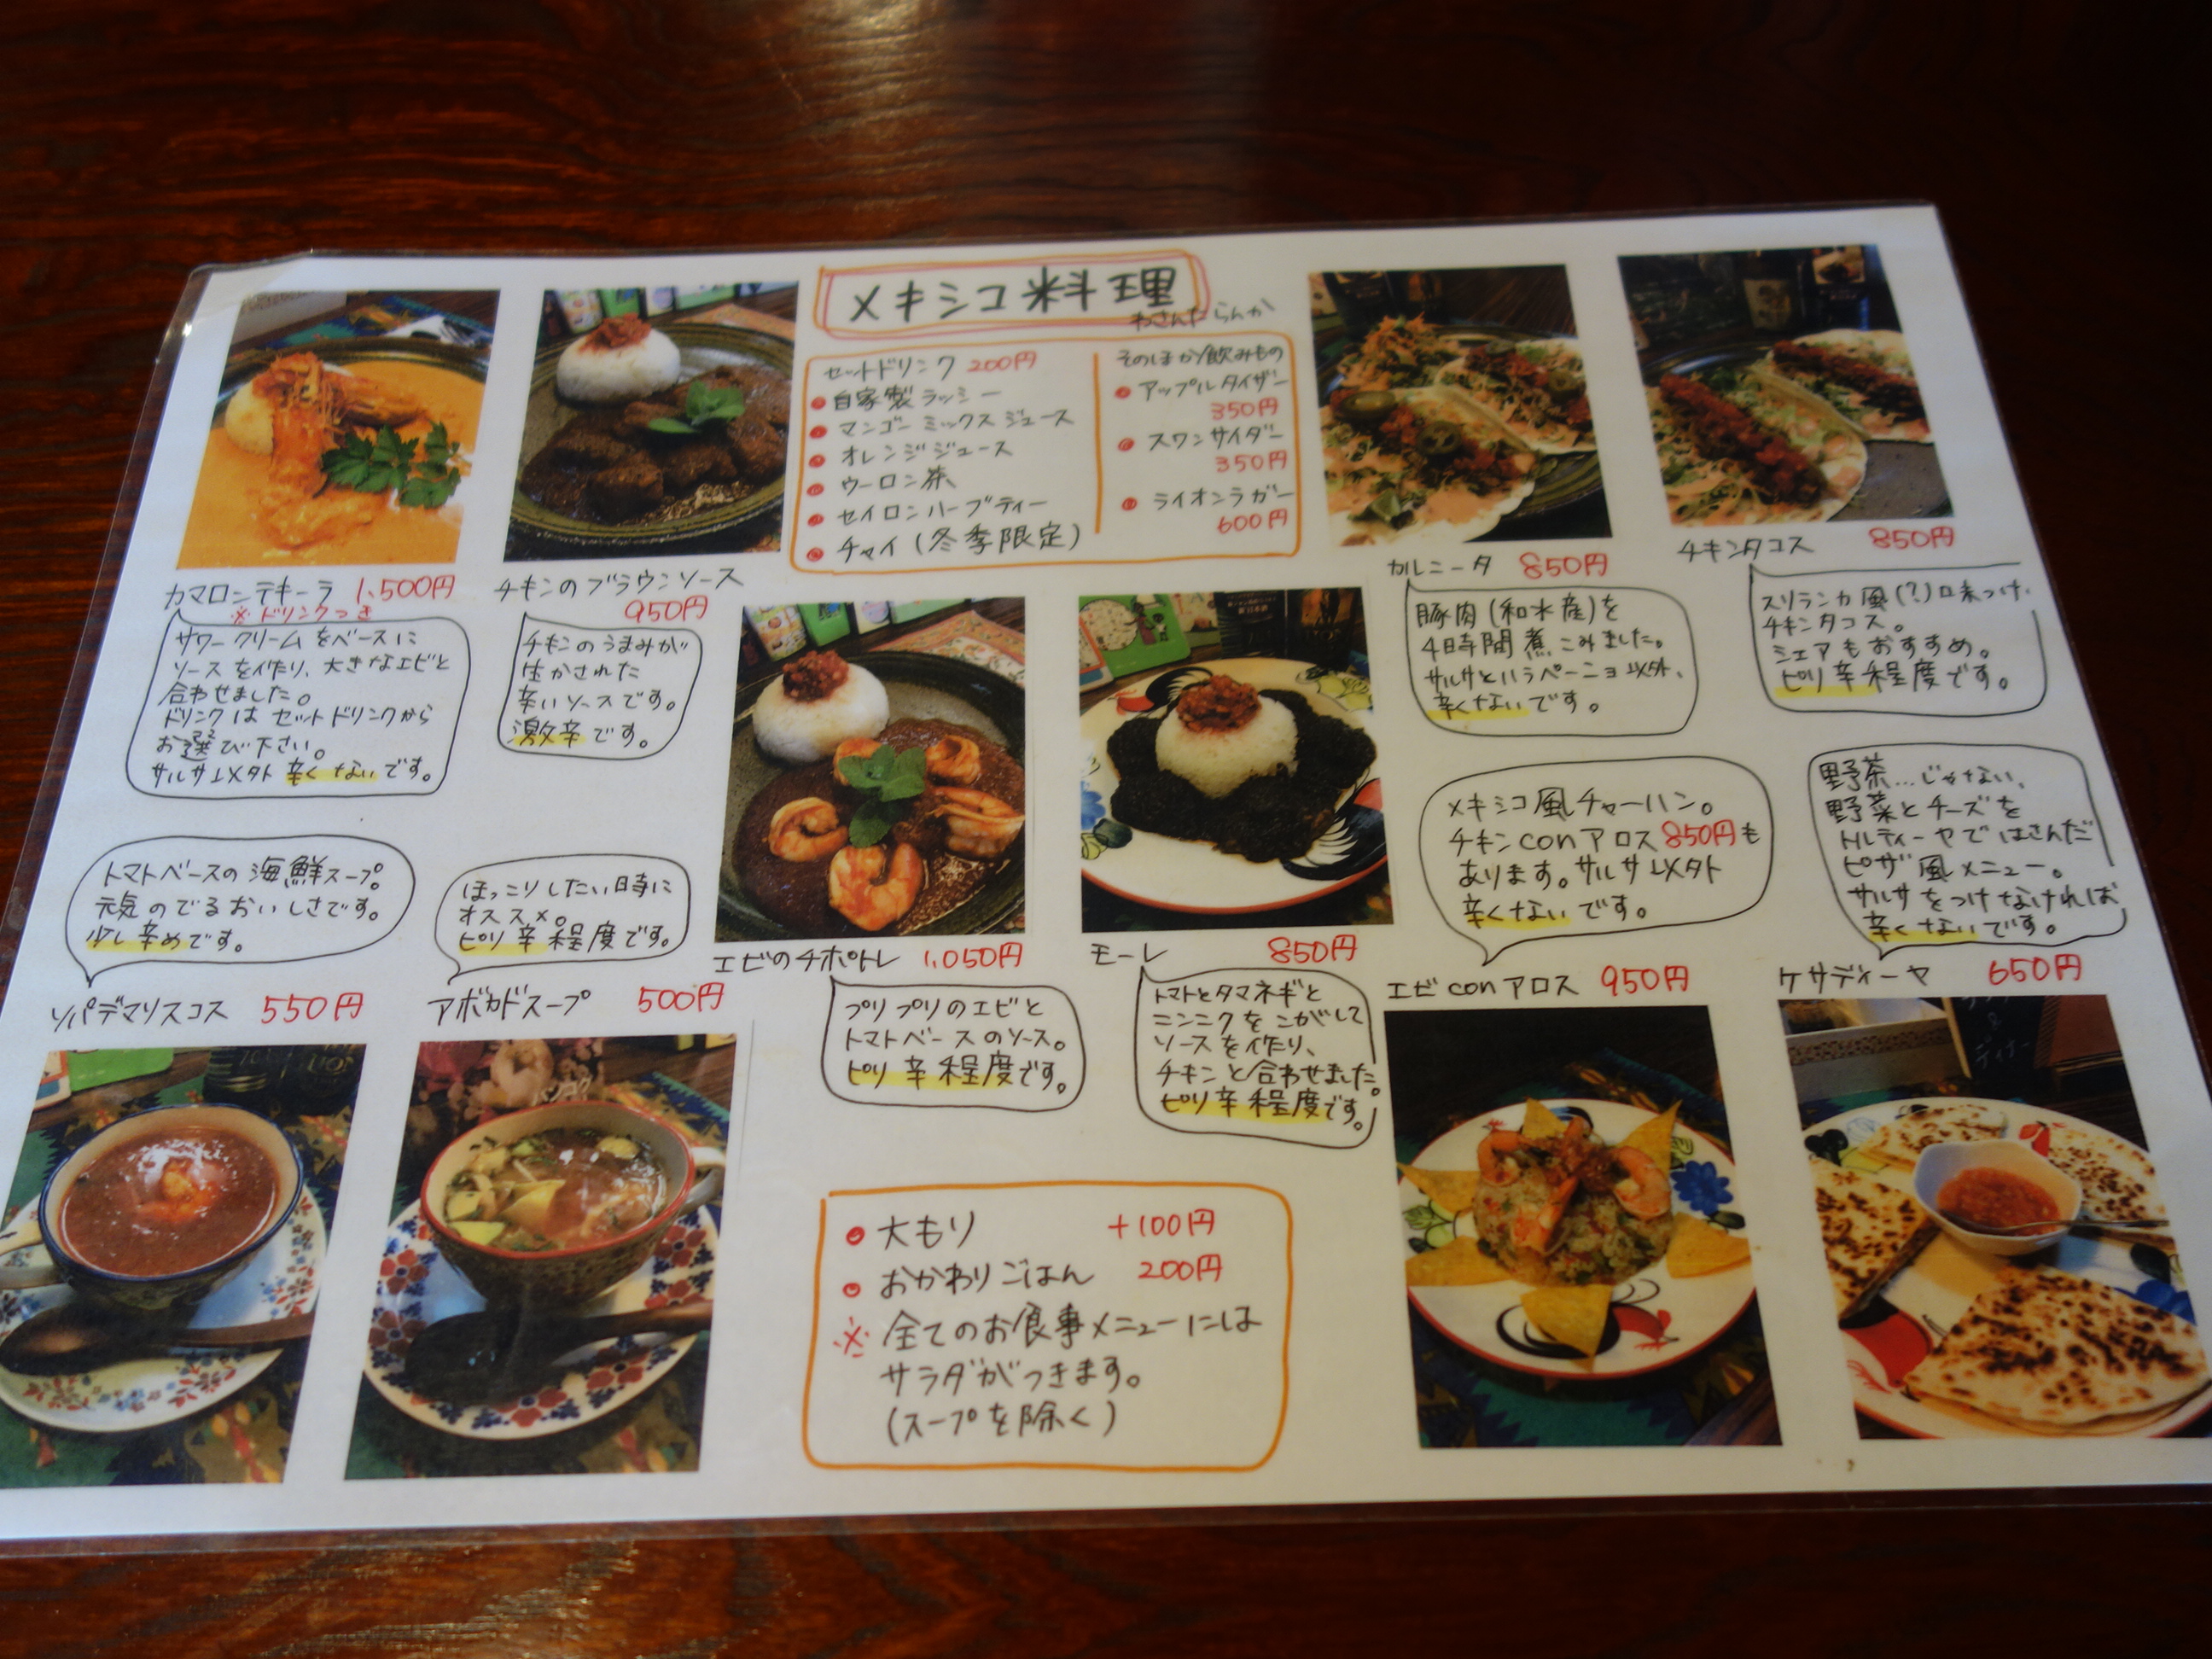 メキシコ料理
わさんたらんか
セットドリンク 200円
●自家製ラッシー
●マンゴーミックスジュース
●オレンジジュース
●ウーロン茶
●セイロンハーブティー
●チャイ(冬季限定)
そのほか飲みもの
●アップルタイザー
350円
●スワンサイダー
350円
●ライオンラガー
600円
カマロンテキーラ 1,500円
※ドリンクつき
サワークリームをベースに
ソースを作り、大きなエビと
合わせました。
ドリンクはセットドリンクから
お選び下さい。
サルサ以外辛くないです。
チキンのブラウンソース
950円
チキンのうまみが
生かされた
辛いソースです。
激辛です。
カルニータ 850円
豚肉(和水産)を
4時間煮こみました。
サルサとハラペーニョ以外、
辛くないです。
チキンタコス 850円
スリランカ風(?)味つけ、
チキンタコス。
シェアもおすすめ。
ピリ辛程度です。
トマトベースの海鮮スープ。
元気のでるおいしさです。
少し辛めです。
ソパデマリスコス 550円
ほっこりしたい時に
オススメ。
ピリ辛程度です。
アボカドスープ 500円
エビのチポトレ 1,050円
プリプリのエビと
トマトベースのソース。
ピリ辛程度です。
モーレ 850円
トマトとタマネギと
ニンニクをこがして
ソースを作り、
チキンと合わせました。
ピリ辛程度です。
メキシコ風チャーハン。
チキンconアロス850円も
あります。サルサ以外
辛くないです。
エビconアロス 950円
野茶…じゃない、
野菜とチーズを
トルティーヤではさんだ
ピザ風メニュー。
サルサをつけなければ
辛くないです。
ケサディーヤ 650円
●大もり +100円
●おかわりごはん 200円
※全てのお食事メニューには
サラダがつきます。
(スープを除く)